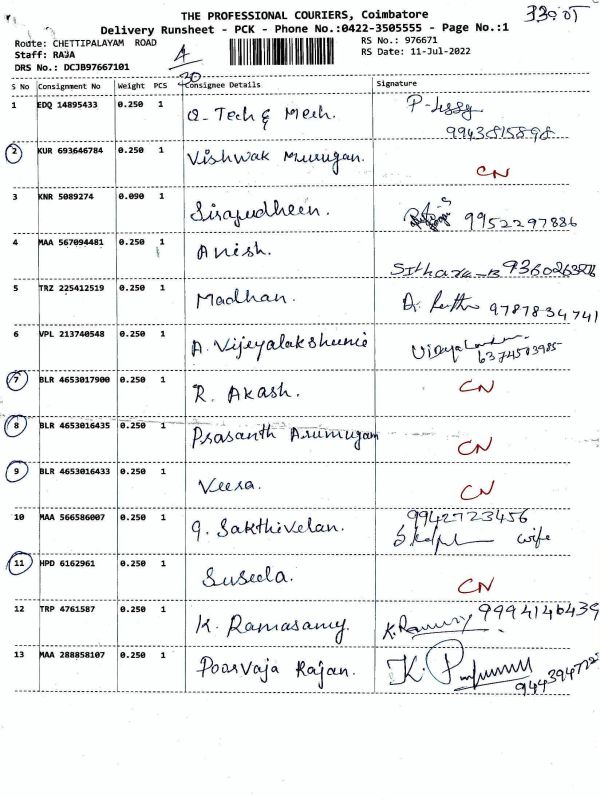 THE PROFESSIONAL COURIERS, Coimbatore
Delivery Runsheet - PCK - Phone No.:0422-3505555 - Page No.:1
Route: CHETTIPALAYAM ROAD
RS No.: 976671
Staff: RAJA
RS Date: 11-Jul-2022
DRS No.: DCJB97667101
S No Consignment No Weight PCS Consignee Details Signature
1 EDQ 14895433 0.250 1 Q-Tech & Mech.
9943815898
2 KUR 693646784 0.250 1 Vishwak Murugan.
CN
3 KNR 5089274 0.090 1 Sirajudheen.
9952297886
4 MAA 567094481 0.250 1 Anish.
5 TRZ 225412519 0.250 1 Madhan. 9787834741
6 VPL 213740548 0.250 1 A. Vijeyalakshumie
6374503985
7 BLR 4653017900 0.250 1 R. Akash. CN
8 BLR 4653016435 0.250 1 Prasanth Arumugam
CN
9 BLR 4653016433 0.250 1 Veera. CN
10 MAA 566586007 0.250 1 G. Sakthivelan. 9942723456
wife
11 HPD 6162961 0.250 1 Suseela. CN
12 TRP 4761587 0.250 1 K. Ramasamy. 9994146439
13 MAA 288858107 0.250 1 Poorvaja Rajan.